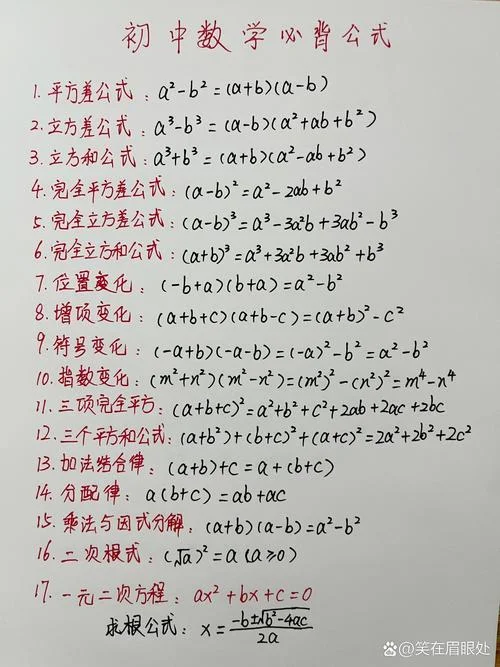 初中数学必背公式
1. 平方差公式：a²-b²=(a+b)(a-b)
2. 立方差公式：a³-b³=(a-b)(a²+ab+b²)
3. 立方和公式：a³+b³=(a+b)(a²-ab+b²)
4. 完全平方差公式：(a-b)²=a²-2ab+b²
5. 完全立方差公式：(a-b)³=a³-3a²b+3ab²-b³
6. 完全立方和公式：(a+b)³=a³+3a²b+3ab²+b³
7. 位置变化：(-b+a)(b+a)=a²-b²
8. 增项变化：(a+b+c)(a+b-c)=(a+b)²-c²
9. 符号变化：(-a+b)(-a-b)=(-a)²-b²=a²-b²
10. 指数变化：(m²+n²)(m²-n²)=(m²)²-(n²)²=m⁴-n⁴
11. 三项完全平方：(a+b+c)²=a²+b²+c²+2ab+2ac+2bc
12. 三个平方和公式：(a+b²)+(b+c)²+(a+c)²=2a²+2b²+2c²
13. 加法结合律：(a+b)+c=a+(b+c)
14. 分配律：a(b+c)=ab+ac
15. 乘法与因式分解：(a+b)(a-b)=a²-b²
16. 二次根式：(√a)²=a(a≥0)
17. 一元二次方程：ax²+bx+c=0
求根公式：x=(-b±√b²-4ac)/2a
@笑在眉眼处